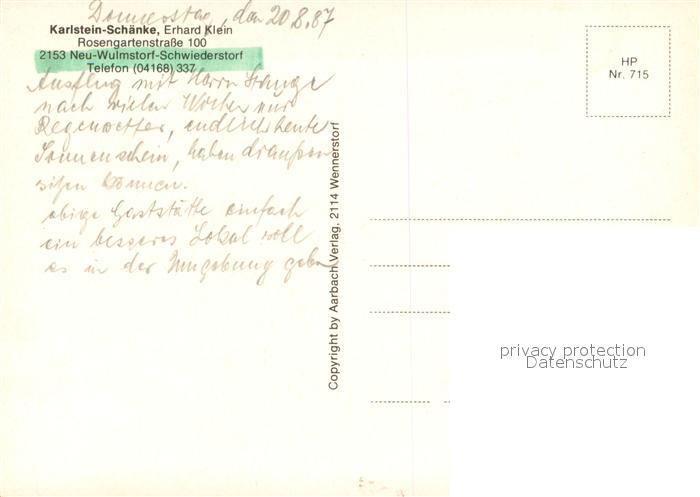 Donnerstag, den 20.8.87
Karlstein-Schänke, Erhard Klein
Rosengartenstraße 100
2153 Neu-Wulmstorf-Schwiederstorf
Telefon (04168) 337
Ausflug mit Herrn Stange
nach vielen Wochen nur
Regenwetter, endlich heute
Sonnenschein, haben draußen
sitzen können.
obige Gaststätte einfach
ein besseres Lokal soll
es in der Umgebung geben
Copyright by Aarbach Verlag, 2114 Wennerstorf
HP
Nr. 715
privacy protection
Datenschutz